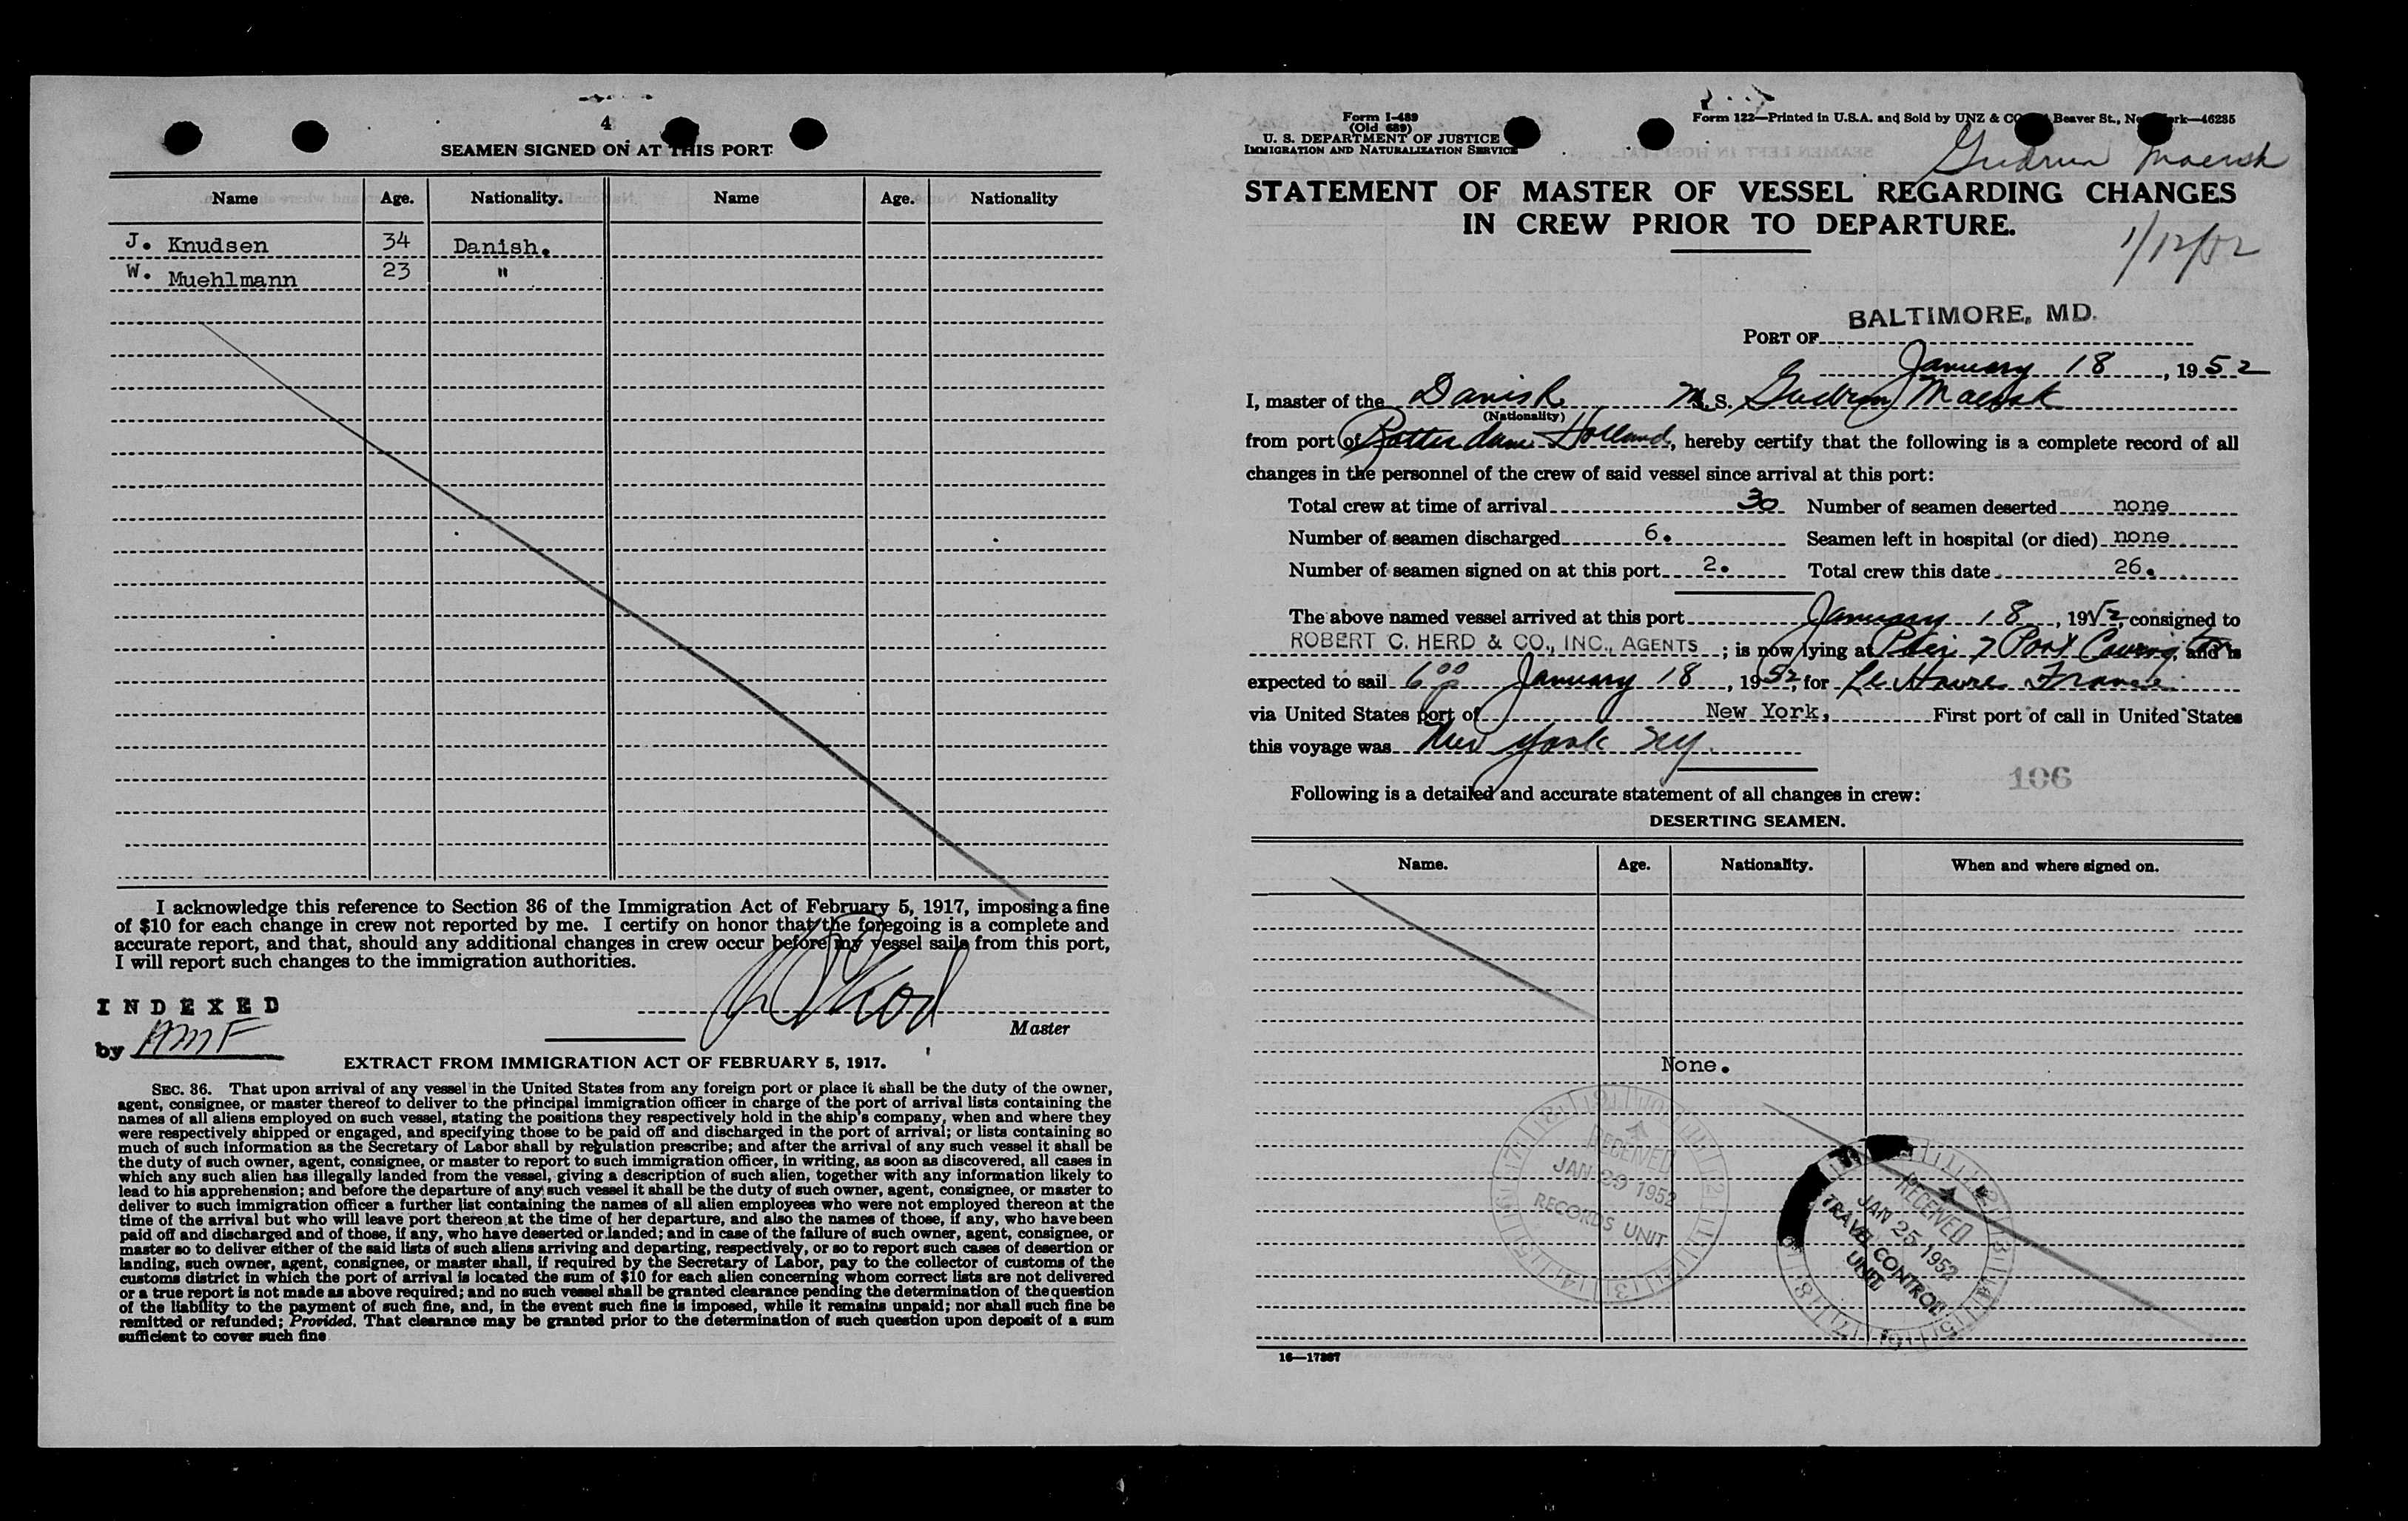 4
SEAMEN SIGNED ON AT THIS PORT
Name Age. Nationality. Name Age. Nationality
J. Knudsen 34 Danish.
W. Muehlmann 23 "
I acknowledge this reference to Section 36 of the Immigration Act of February 5, 1917, imposing a fine
of $10 for each change in crew not reported by me. I certify on honor that the foregoing is a complete and
accurate report, and that, should any additional changes in crew occur before my vessel sails from this port,
I will report such changes to the immigration authorities.
INDEXED
by AMF
Master
EXTRACT FROM IMMIGRATION ACT OF FEBRUARY 5, 1917.
SEC. 36. That upon arrival of any vessel in the United States from any foreign port or place it shall be the duty of the owner,
agent, consignee, or master thereof to deliver to the principal immigration officer in charge of the port of arrival lists containing the
names of all aliens employed on such vessel, stating the positions they respectively hold in the ship's company, when and where they
were respectively shipped or engaged, and specifying those to be paid off and discharged in the port of arrival; or lists containing so
much of such information as the Secretary of Labor shall by regulation prescribe; and after the arrival of any such vessel it shall be
the duty of such owner, agent, consignee, or master to report to such immigration officer, in writing, as soon as discovered, all cases in
which any such alien has illegally landed from the vessel, giving a description of such alien, together with any information likely to
lead to his apprehension; and before the departure of any such vessel it shall be the duty of such owner, agent, consignee, or master to
deliver to such immigration officer a further list containing the names of all alien employees who were not employed thereon at the
time of the arrival but who will leave port thereon at the time of her departure, and also the names of those, if any, who have been
paid off and discharged and of those, if any, who have deserted or landed; and in case of the failure of such owner, agent, consignee, or
master so to deliver either of the said lists of such aliens arriving and departing, respectively, or so to report such cases of desertion or
landing, such owner, agent, consignee, or master shall, if required by the Secretary of Labor, pay to the collector of customs of the
customs district in which the port of arrival is located the sum of $10 for each alien concerning whom correct lists are not delivered
or a true report is not made as above required; and no such vessel shall be granted clearance pending the determination of the question
of the liability to the payment of such fine, and, in the event such fine is imposed, while it remains unpaid; nor shall such fine be
remitted or refunded; Provided, That clearance may be granted prior to the determination of such question upon deposit of a sum
sufficient to cover such fine
Form I-489
(Old 689)
U. S. DEPARTMENT OF JUSTICE
IMMIGRATION AND NATURALIZATION SERVICE
Form 122—Printed in U.S.A. and Sold by UNZ & CO Beaver St., New York—46285
Gudrun Maersk
STATEMENT OF MASTER OF VESSEL REGARDING CHANGES
IN CREW PRIOR TO DEPARTURE.
1/12/52
PORT OF BALTIMORE, MD.
January 18, 1952
I, master of the Danish M. S. Gudrun Maersk
(Nationality)
from port of Rotterdam Holland, hereby certify that the following is a complete record of all
changes in the personnel of the crew of said vessel since arrival at this port:
Total crew at time of arrival 30 Number of seamen deserted none
Number of seamen discharged 6. Seamen left in hospital (or died) none
Number of seamen signed on at this port 2. Total crew this date 26.
The above named vessel arrived at this port January 18, 1952, consigned to
ROBERT C. HERD & CO., INC., AGENTS ; is now lying at Pier 7 Port Covington, and is
expected to sail 6 00 p January 18, 1952, for Le Havre France
via United States port of New York, First port of call in United States
this voyage was New York NY.
106
Following is a detailed and accurate statement of all changes in crew:
DESERTING SEAMEN.
Name. Age. Nationality. When and where signed on.
None.
RECEIVED
JAN 29 1952
RECORDS UNIT
RECEIVED
JAN 25 1952
TRAVEL CONTROL
UNIT
16—17367